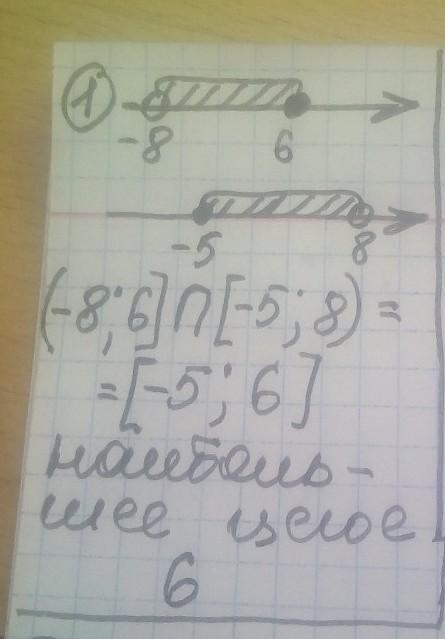 1
-8 6
-5 8
(-8; 6] ∩ [-5; 8) =
= [-5; 6]
наиболь-
шее целое
6